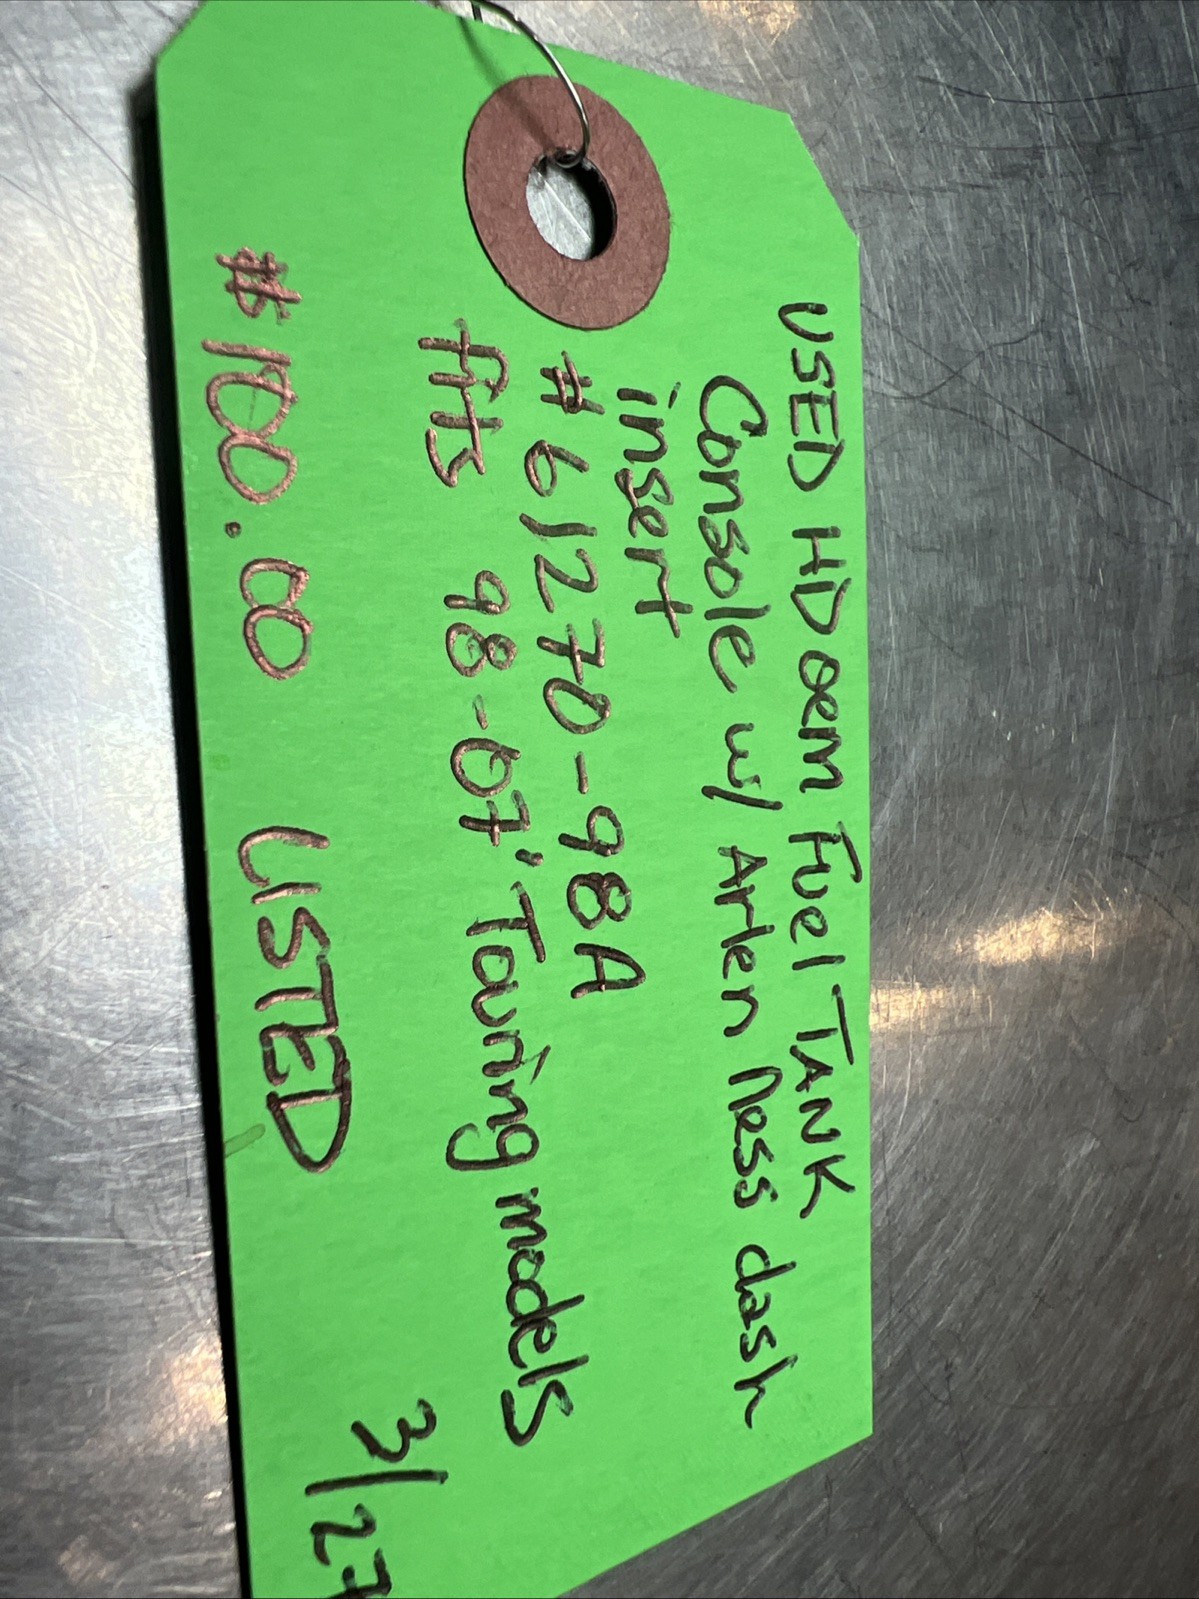 USED HD oem Fuel TANK
Console w/ Arlen Ness dash
insert
#61270-98A
fits 98-07' Touring models
$100.00 LISTED 3/27